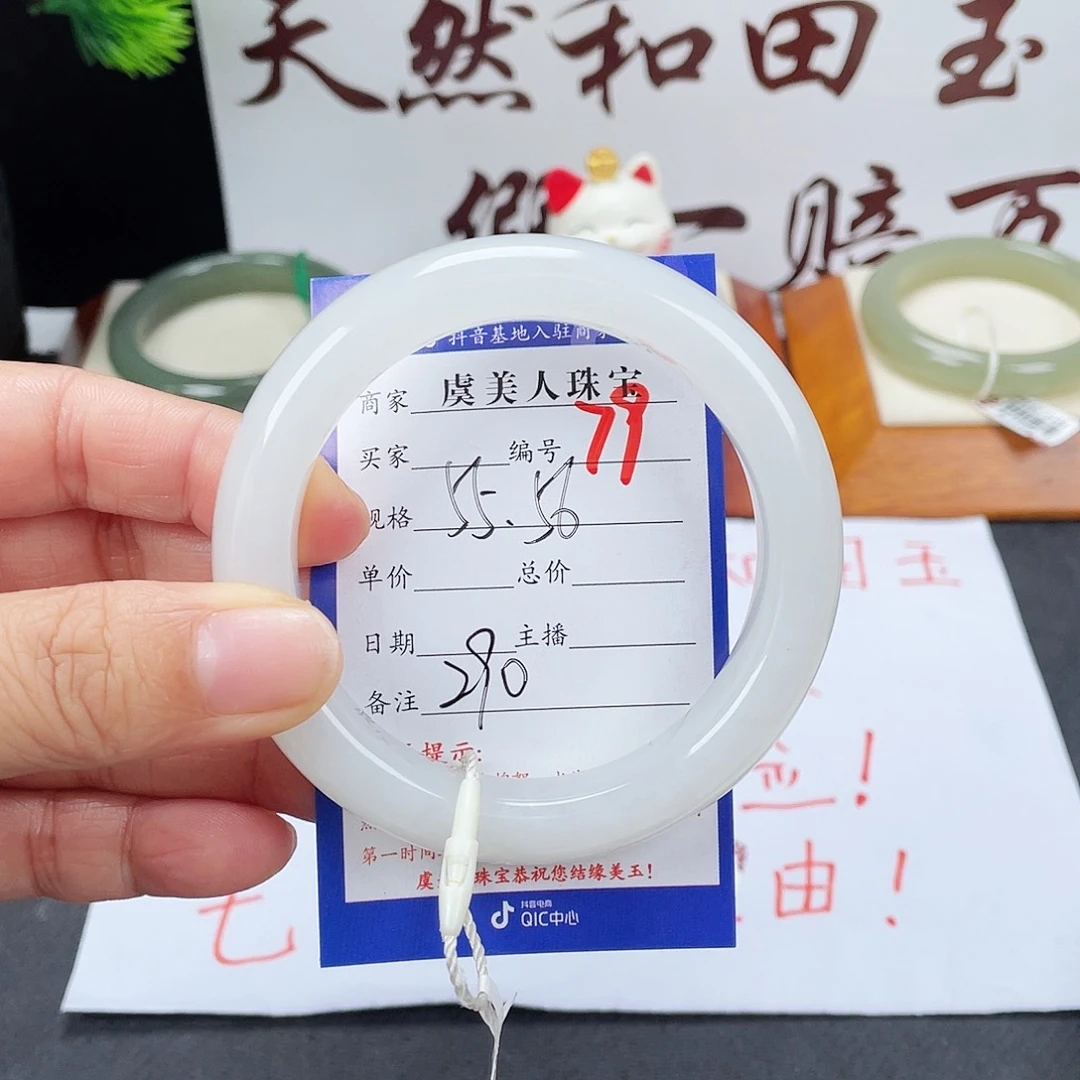 天然和田玉
假一赔万
抖音基地入驻商家
商家 虞美人珠宝
买家 编号 79
规格 55.56
单价 总价
日期 主播
备注 290
提示:
第一时间
虞 珠宝恭祝您结缘美玉!
抖音电商
QIC中心
玉
!
七 由!